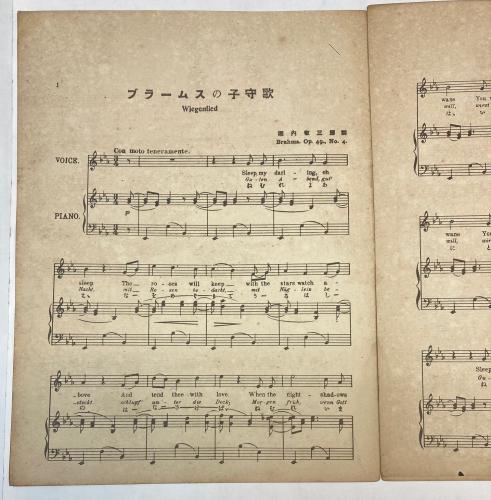 1
ブラームスの子守歌
Wiegenlied
堀内敬三譯詞
Brahms. Op. 49., No. 4.
Con moto teneramente.
VOICE.
Sleep, my dar - ling, oh
Gu - ten A - bend, gut'
ねむれよわ
PIANO.
p
sleep The ro - ses will keep with the stars watch a -
Nacht, mit Ro - sen be - dacht, mit Näg - lein be -
bove And tend thee with love. When the night - shad - ows
- steckt schlupf' un - ter die Deck; Mor - gen früh, wenn Gott
wane You
will, wirst
は、い
wane You
will, wir
にと
Sleep
Gu -